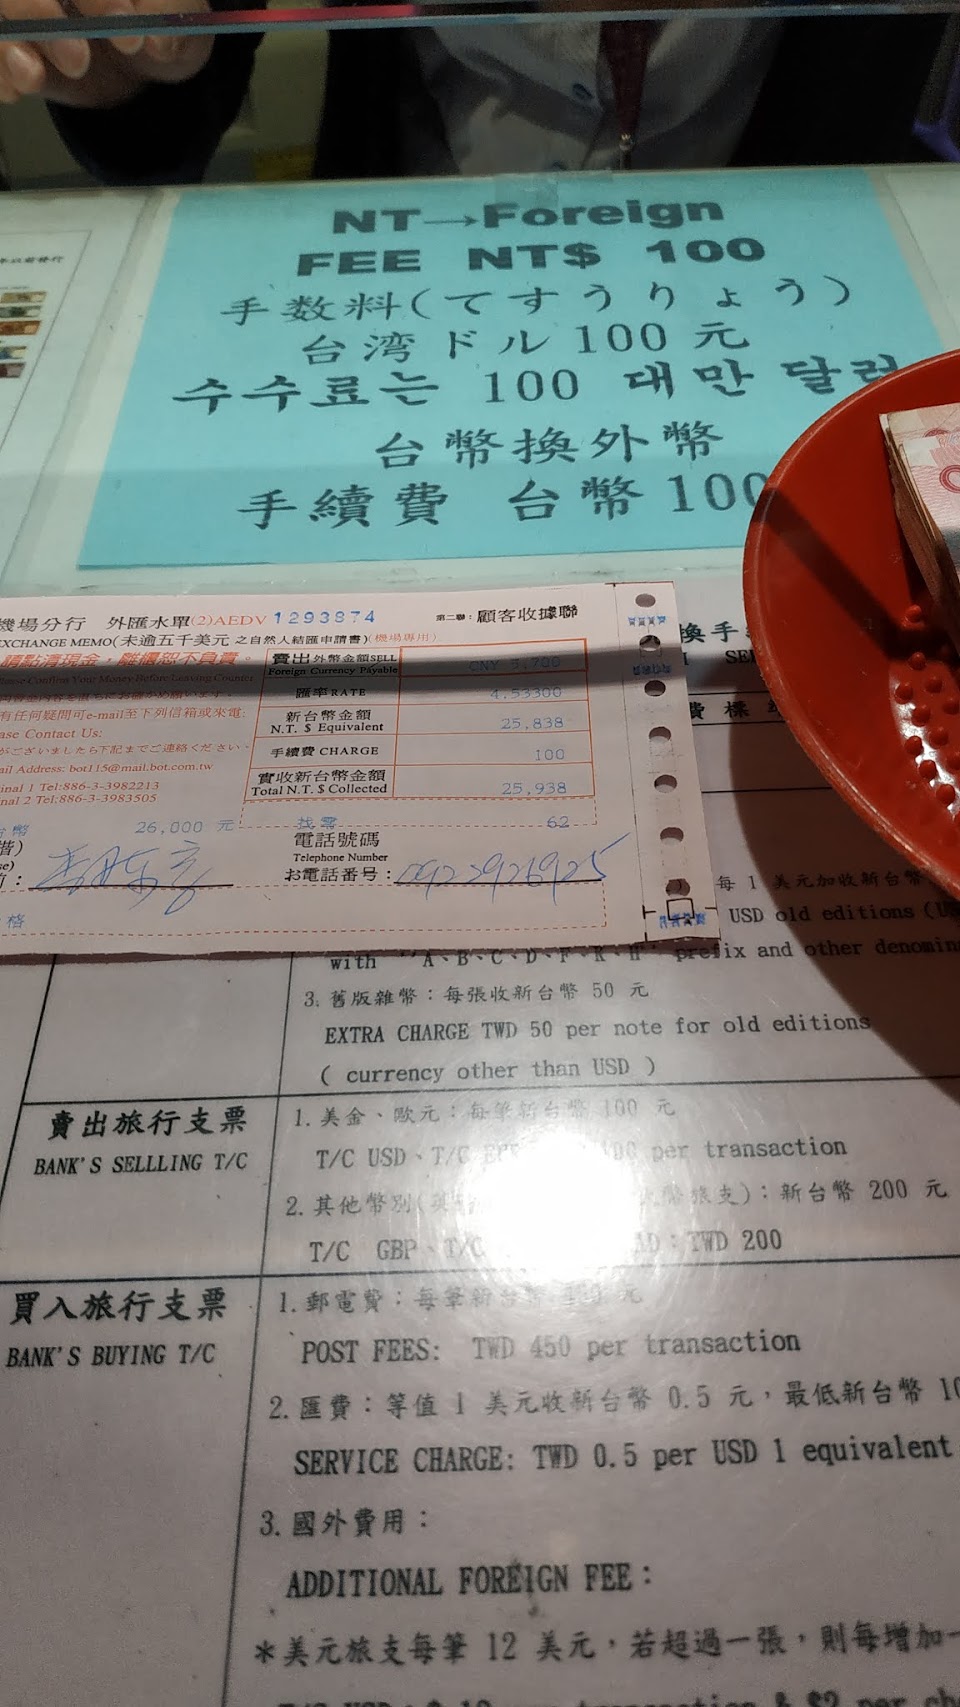 年以前發行
NT→Foreign
FEE NT$ 100
手数料(てすうりょう)
台湾ドル100元
수수료는 100 대만 달러
台幣換外幣
手續費 台幣100
機場分行 外匯水單(2)AEDV 1293874 第二聯：顧客收據聯
EXCHANGE MEMO(未逾五千美元之自然人結匯申請書)(機場專用)
請點清現金，離櫃恕不負責。
Please Confirm Your Money Before Leaving Counter
有任何疑問可e-mail至下列信箱或來電:
ase Contact Us:
がございましたら下記までご連絡ください、
ail Address: bot115@mail.bot.com.tw
inal 1 Tel:886-3-3982213
inal 2 Tel:886-3-3983505
賣出外幣金額SELL
Foreign Currency Payable
CNY 5,700
匯率RATE 4.53300
新台幣金額
N.T. $ Equivalent
25,838
手續費CHARGE 100
實收新台幣金額
Total N.T. $ Collected
25,938
台幣 26,000 元 找零 62
電話號碼
Telephone Number
お電話番号：0922926925
格
換手
SEL
費標準
每 1 美元加收新台幣
USD old editions (U
with "A、B、C、D、F、K、H" prefix and other denomin
3.舊版雜幣：每張收新台幣 50 元
EXTRA CHARGE TWD 50 per note for old editions
( currency other than USD )
賣出旅行支票
BANK'S SELLLING T/C
1.美金、歐元：每筆新台幣 100 元
T/C USD、T/C per transaction
2.其他幣別 旅支)：新台幣 200 元
T/C GBP、T/C AD：TWD 200
買入旅行支票
BANK'S BUYING T/C
1.郵電費：每筆新台幣 450 元
POST FEES: TWD 450 per transaction
2.匯費：等值 1 美元收新台幣 0.5 元，最低新台幣 10
SERVICE CHARGE: TWD 0.5 per USD 1 equivalent
3.國外費用：
ADDITIONAL FOREIGN FEE：
*美元旅支每筆 12 美元，若超過一張，則每增加一